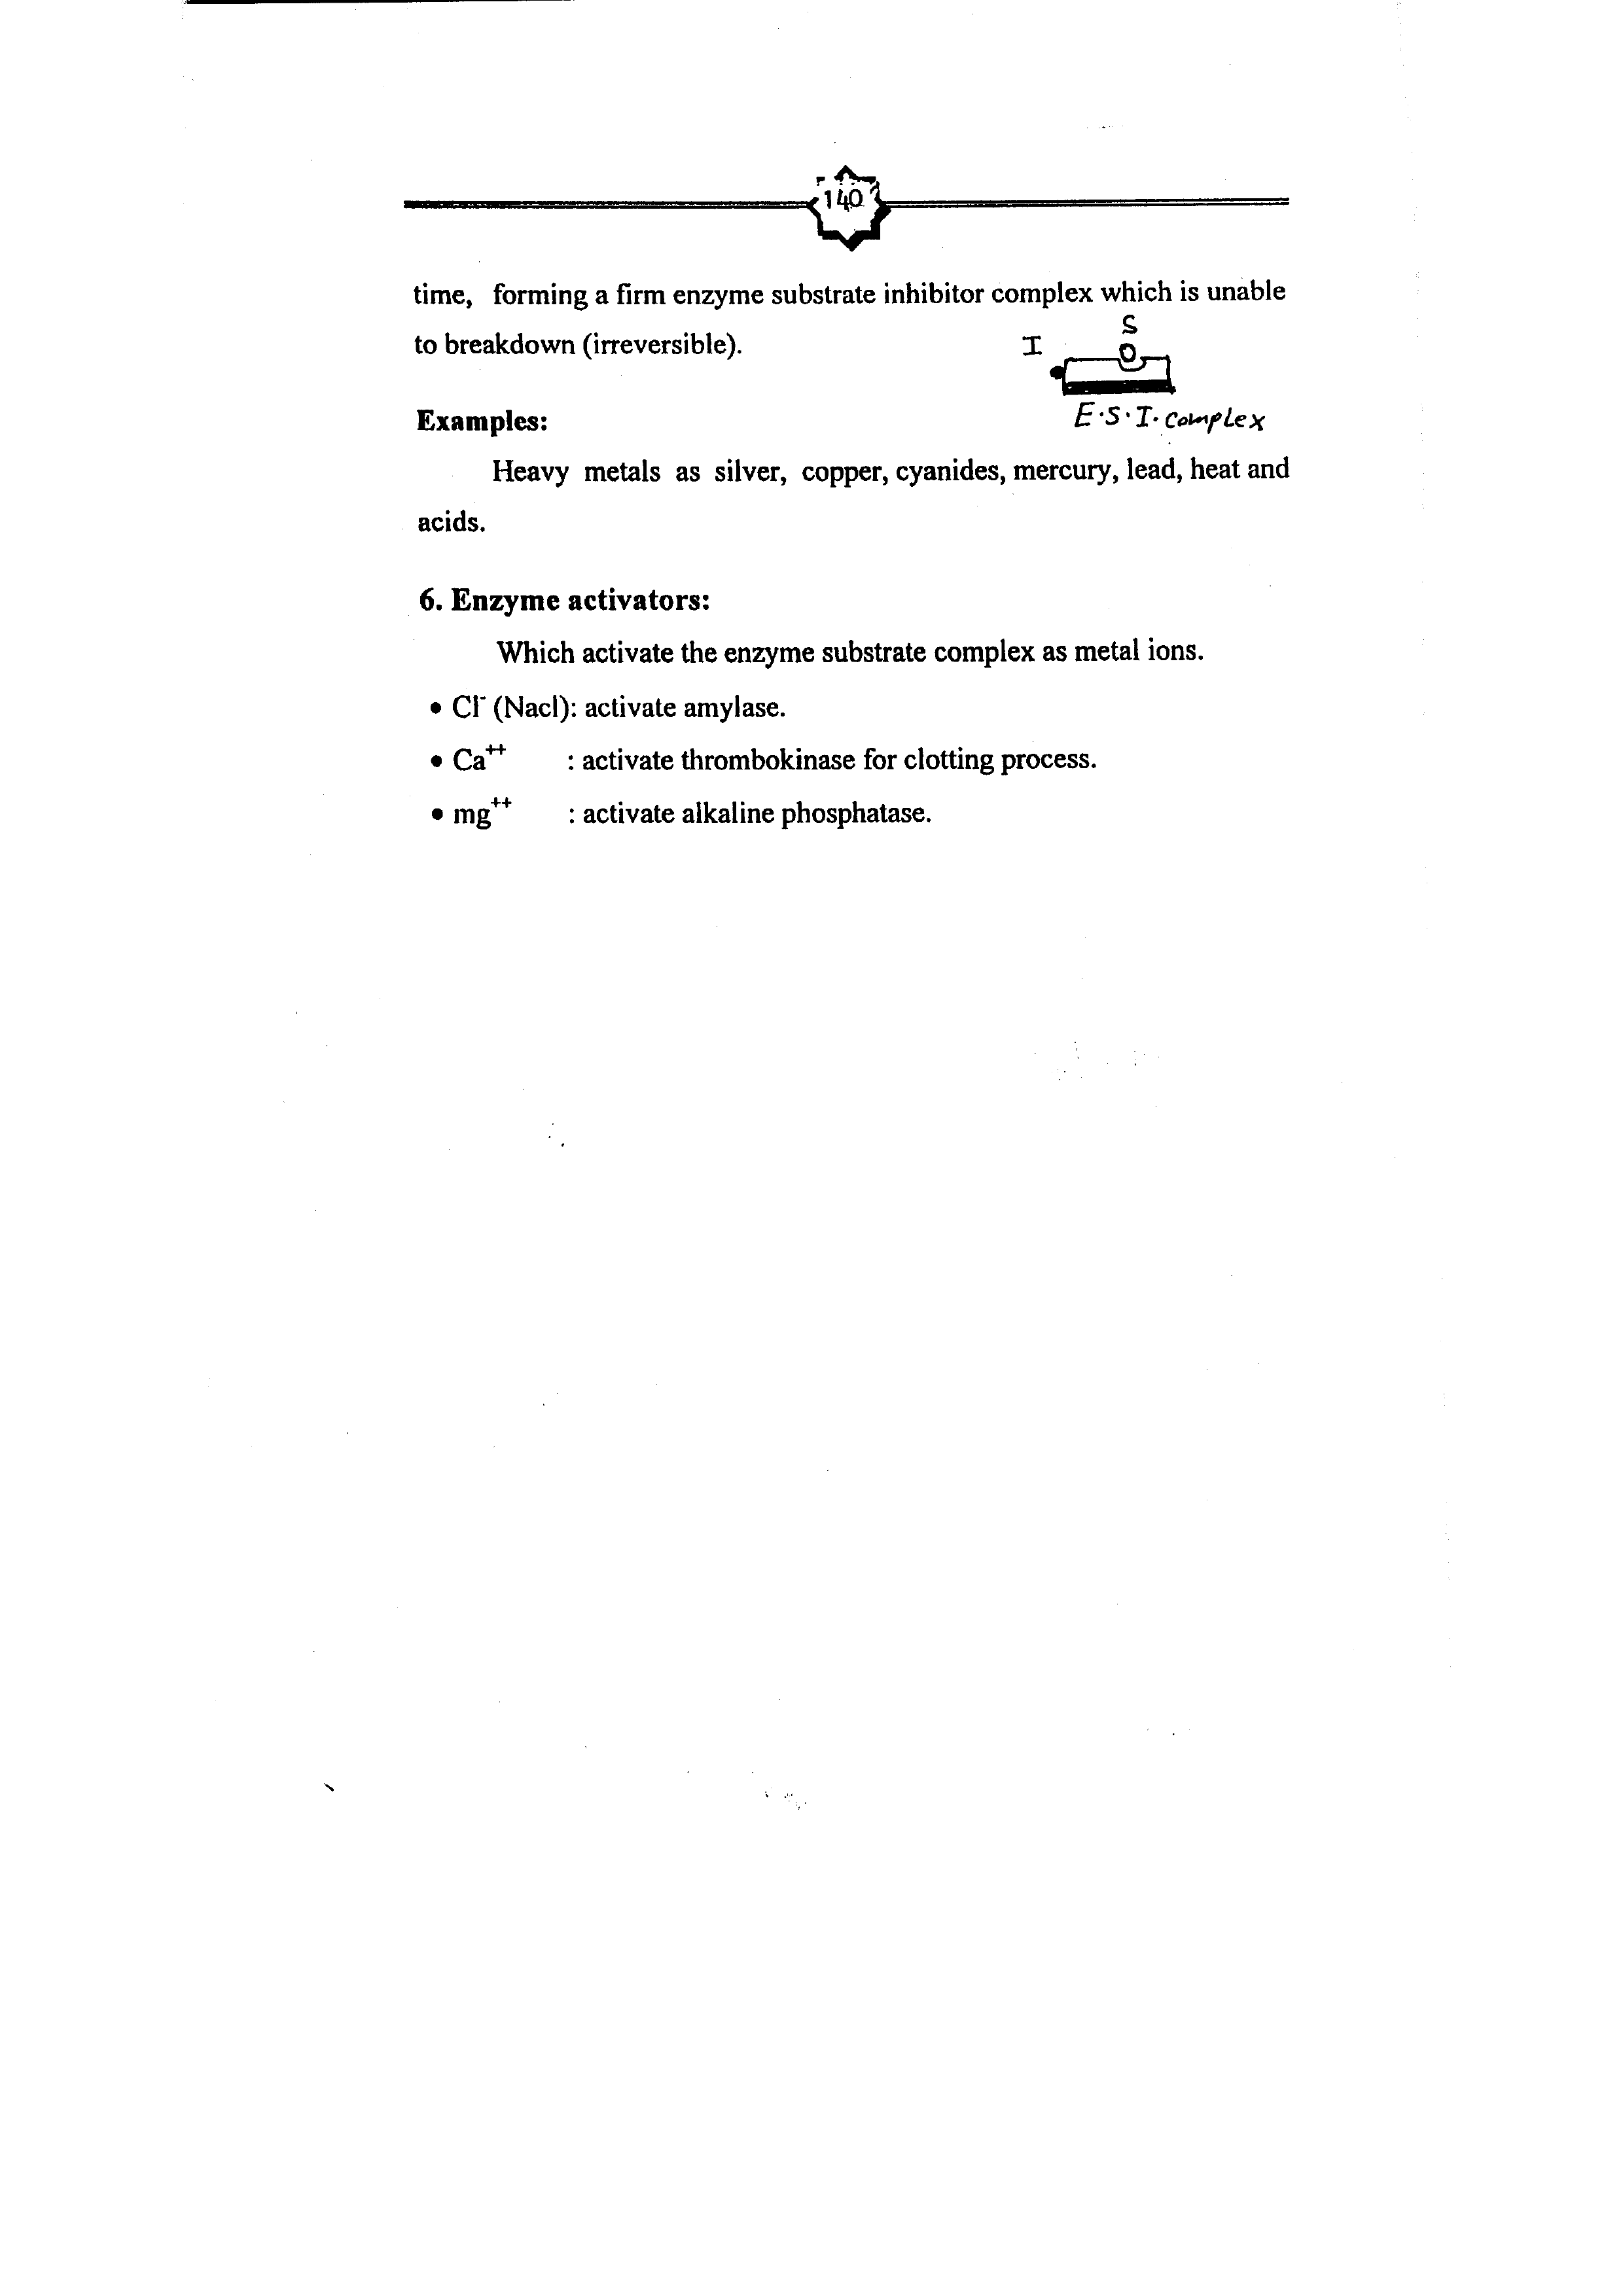 140
time, forming a firm enzyme substrate inhibitor complex which is unable
to breakdown (irreversible).
I
S
E.S.I. complex
Examples:
Heavy metals as silver, copper, cyanides, mercury, lead, heat and
acids.
6. Enzyme activators:
Which activate the enzyme substrate complex as metal ions.
• Cl⁻ (Nacl): activate amylase.
• Ca⁺⁺ : activate thrombokinase for clotting process.
• mg⁺⁺ : activate alkaline phosphatase.